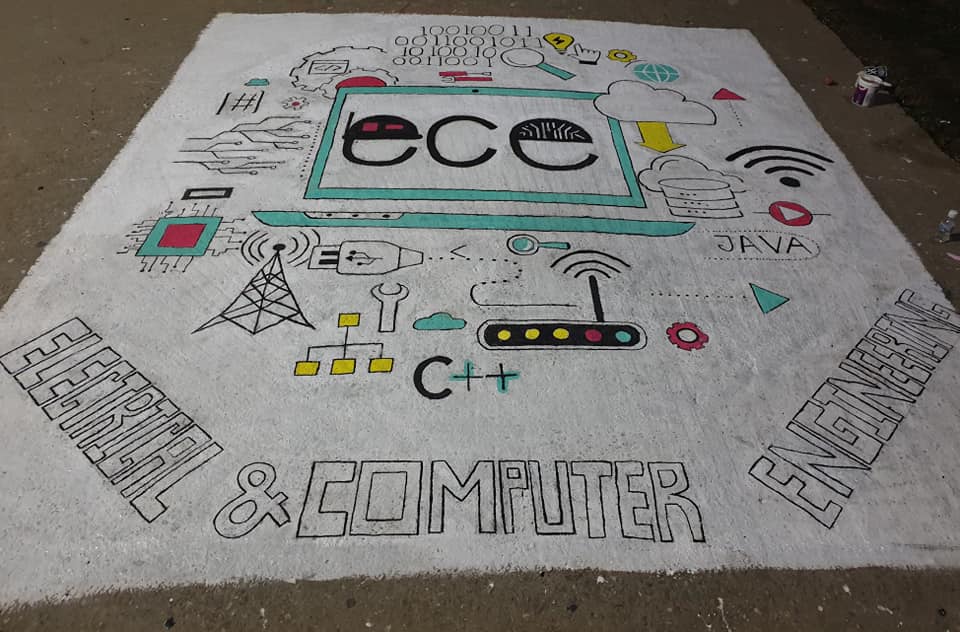 10010011
0011001011
1010010
0011001
</>
#
ece
JAVA
<
C++
ELECTRICAL
& COMPUTER
ENGINEERING